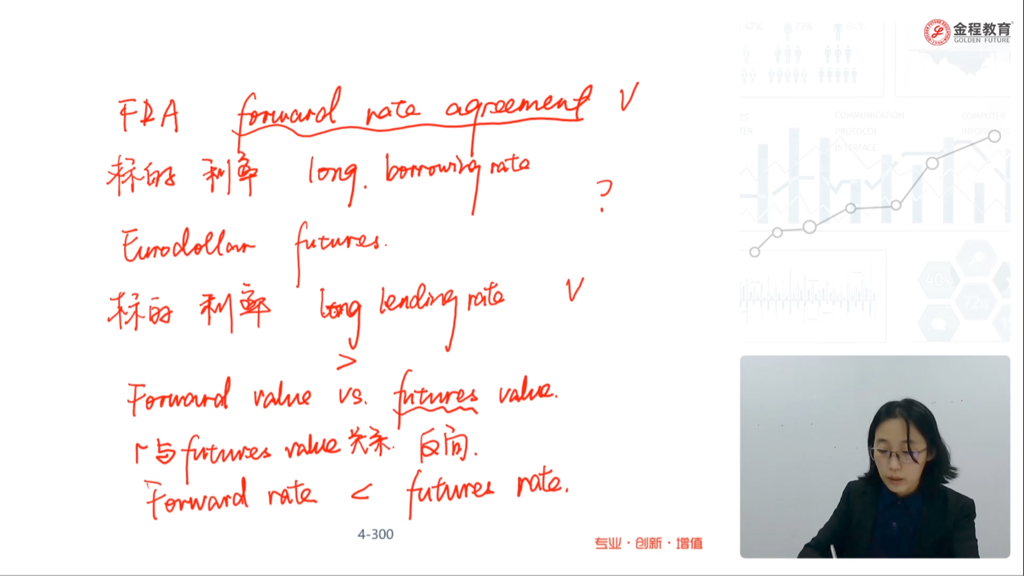 金程教育
GOLDEN FUTURE
FRA forward rate agreement √
标的 利率 long. borrowing rate
?
Eurodollar futures.
标的 利率 long lending rate √
>
Forward value vs. futures value.
r与futures value关系. 反向.
Forward rate < futures rate.
4-300
专业·创新·增值